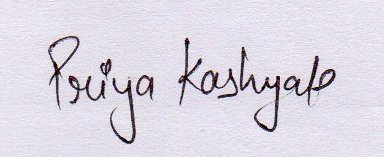 Priya Kashyap